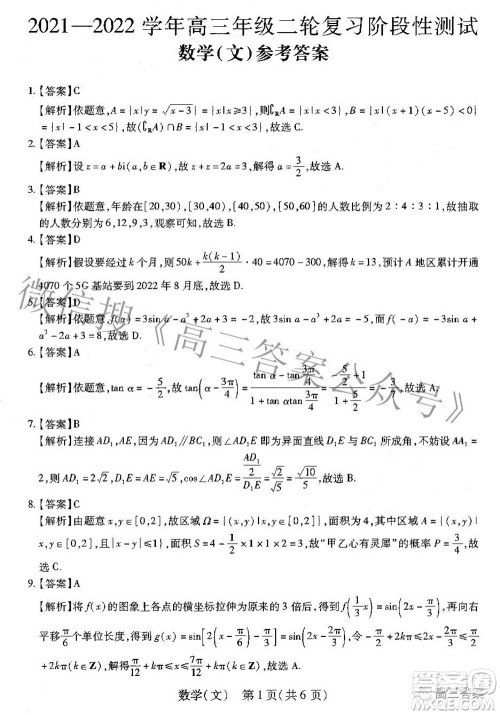 2021—2022 学年高三年级二轮复习阶段性测试
数学(文)参考答案
1. 【答案】C
【解析】依题意,A={x|y=√(x-3)}={x|x≥3},则∁RA={x|x<3},B={x|(x+1)(x-5)<0}
={x|-1<x<5},故(∁RA)∩B={x|-1<x<3},故选C.
2. 【答案】A
【解析】设z=a+bi(a,b∈R),故 解得a=3/2,故选A.
3. 【答案】B
【解析】依题意,年龄在[20,30),[30,40),[40,50),[50,60]的人数比例为2:4:3:1,故抽取
的人数分别为6,12,9,3,观察可知,故选B.
4. 【答案】D
【解析】假设要经过k个月,则5k+k(k-1)/2·40=4070-300,解得k=13,预计A地区累计开通
4070个5G基站要到2022年8月底,故选D.
5. 【答案】D
【解析】依题意,f(a)=3sin a-a³-2=1,故3sin a-a³=3,f(-a)=-3sin a+a³-2=-5,故选D.
6. 【答案】A
【解析】依题意,tan α=-5/2,故tan(α-3π/4)= 故选A.
7. 【答案】B
【解析】连接AD₁,AE,因为AD₁∥BC₁,则∠AD₁E即为直线D₁E与BC₁所成角,不妨设AA₁=
2,则AD₁=2√2,D₁E=√5,cos∠AD₁E=(AD₁/2)/D₁E=√2/√5=√10/5,故选B.
8. 【答案】C
【解析】由题意知x,y∈[0,2],故区域Ω={(x,y)|x,y∈[0,2]}的面积S=4,事件A={(x,y)|
x,y∈[0,2]且|x-y|≤1},画出可行域,可求得面积为3,所以“甲乙心有灵犀”的概率P=
3/4,故选C.
9. 【答案】A
【解析】将f(x)的图象上各点的横坐标拉伸为原来的3倍后,得到y=f(1/3 x)=sin(2x-π/3),再向右
平移π/6个单位长度,得到g(x)=sin[2(x-π/6)-π/3]=sin(2x-2π/3),令-π/2+2kπ≤2x-2π/3≤
π/2+2kπ(k∈Z),解得π/12+kπ≤x≤7π/12+kπ(k∈Z),故选A.
数学(文) 第1页(共6页)
微信搜《高三答案公众号》
高三答案